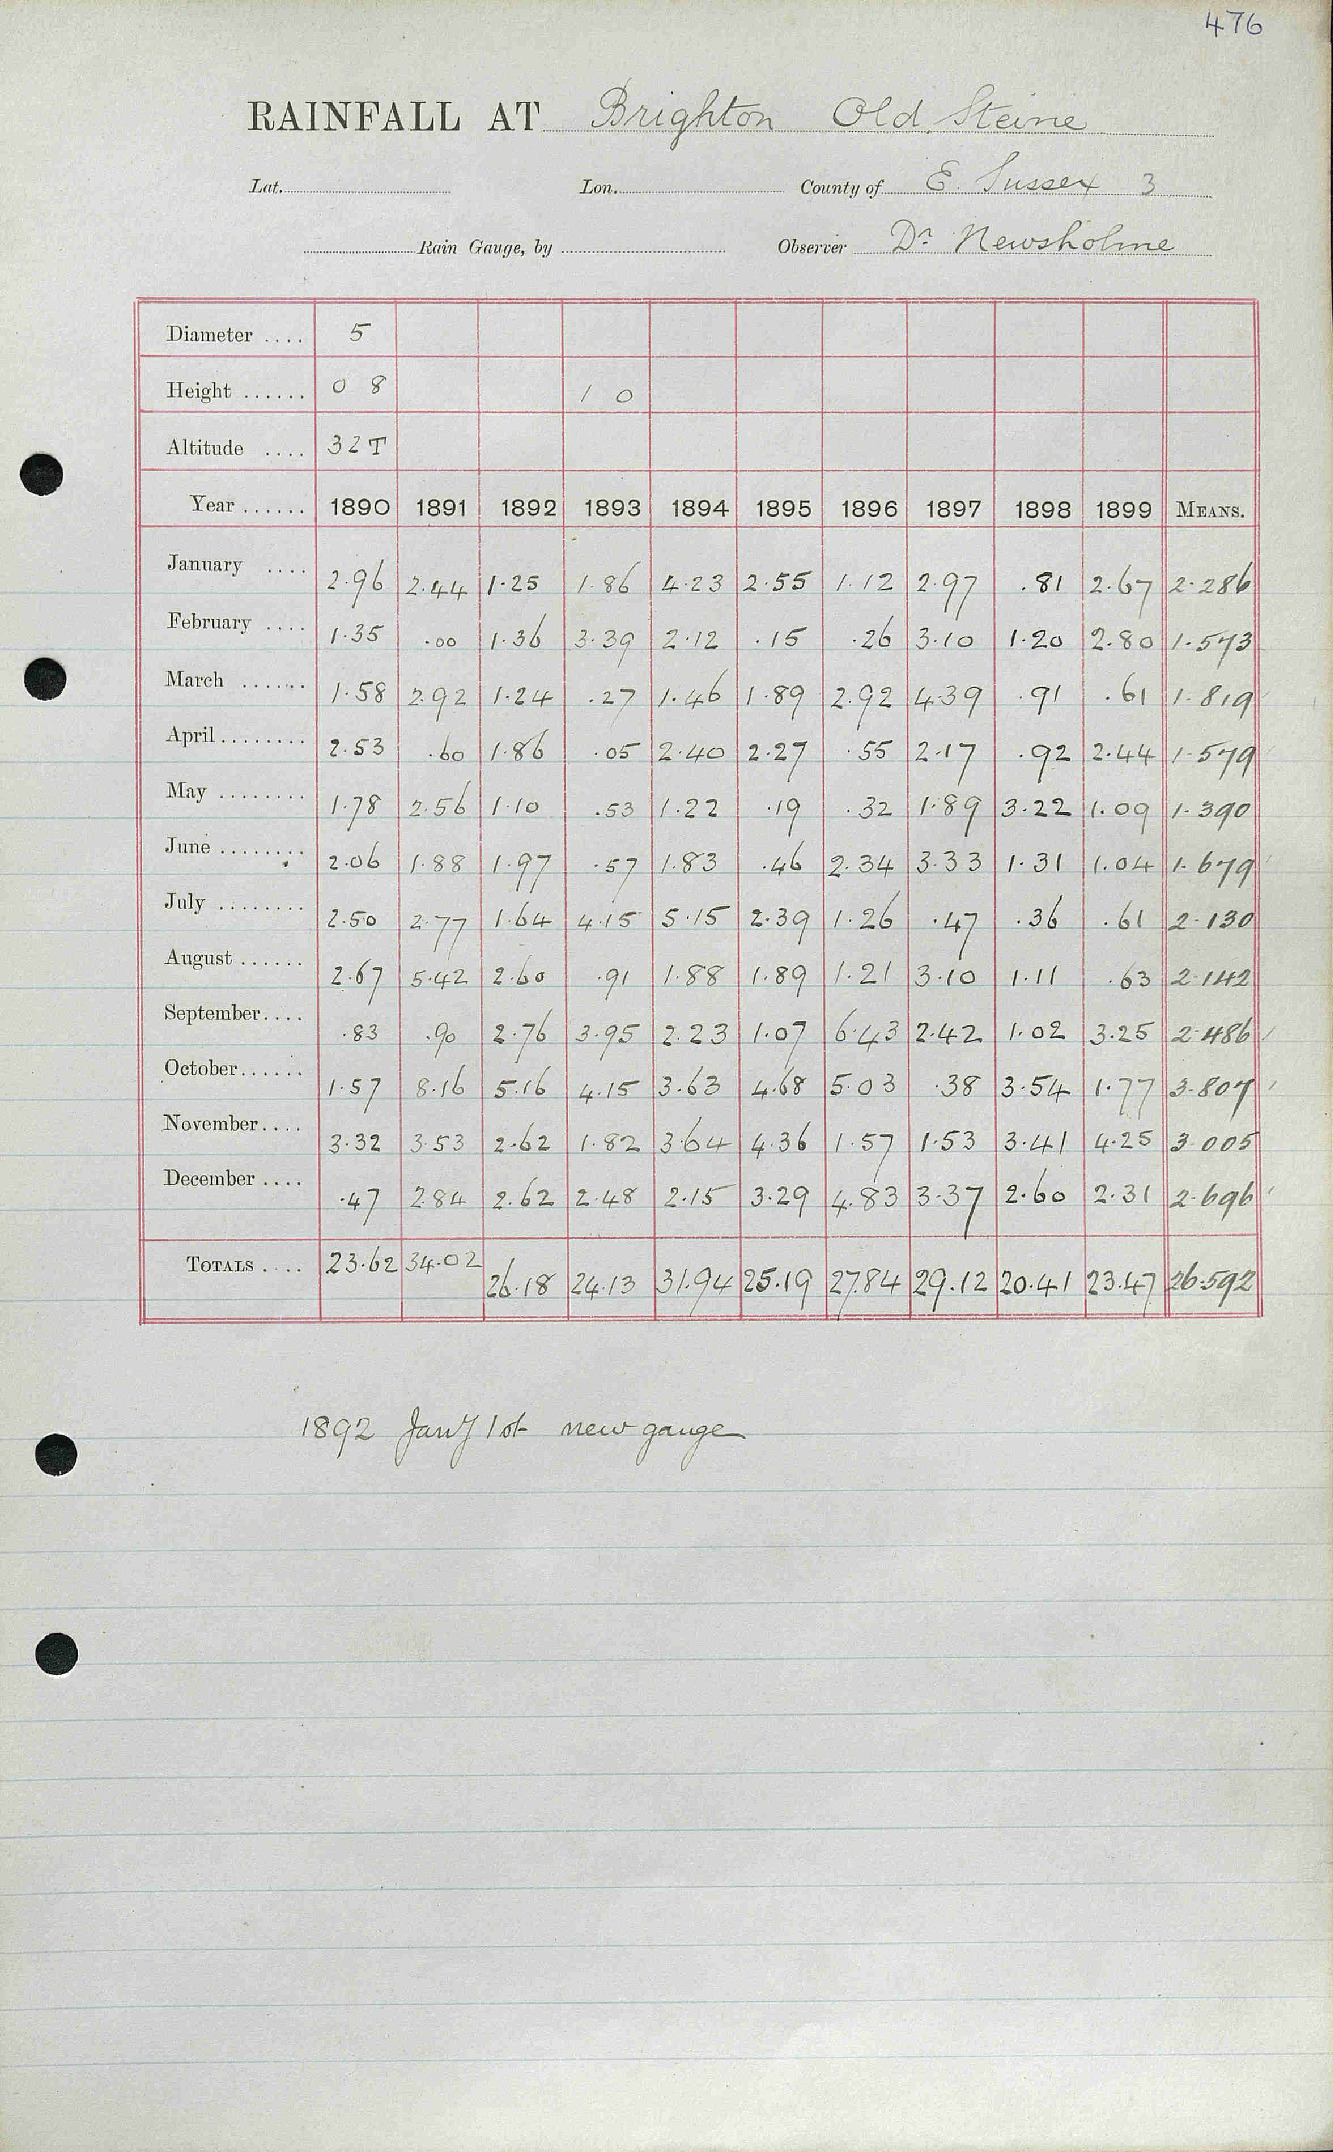 476
RAINFALL AT Brighton Old Steine
Lat. Lon. County of E. Sussex 3
Rain Gauge, by Observer Dr Newsholme
Diameter .... 5
Height ...... 0 8 1 0
Altitude .... 32T
Year ...... 1890 1891 1892 1893 1894 1895 1896 1897 1898 1899 MEANS.
January .... 2.96 2.44 1.25 1.86 4.23 2.55 1.12 2.97 .81 2.67 2.286
February .... 1.35 .00 1.36 3.39 2.12 .15 .26 3.10 1.20 2.80 1.573
March ...... 1.58 2.92 1.24 .27 1.46 1.89 2.92 4.39 .91 .61 1.819
April........ 2.53 .60 1.86 .05 2.40 2.27 .55 2.17 .92 2.44 1.579
May ........ 1.78 2.56 1.10 .53 1.22 .19 .32 1.89 3.22 1.09 1.390
June ........ 2.06 1.88 1.97 .57 1.83 .46 2.34 3.33 1.31 1.04 1.679
July ........ 2.50 2.77 1.64 4.15 5.15 2.39 1.26 .47 .36 .61 2.130
August ...... 2.67 5.42 2.60 .91 1.88 1.89 1.21 3.10 1.11 .63 2.142
September.... .83 .90 2.76 3.95 2.23 1.07 6.43 2.42 1.02 3.25 2.486
October...... 1.57 8.16 5.16 4.15 3.63 4.68 5.03 .38 3.54 1.77 3.807
November.... 3.32 3.53 2.62 1.82 3.64 4.36 1.57 1.53 3.41 4.25 3.005
December .... .47 2.84 2.62 2.48 2.15 3.29 4.83 3.37 2.60 2.31 2.696
TOTALS .... 23.62 34.02 26.18 24.13 31.94 25.19 27.84 29.12 20.41 23.47 26.592
1892 Jany 1st new gauge